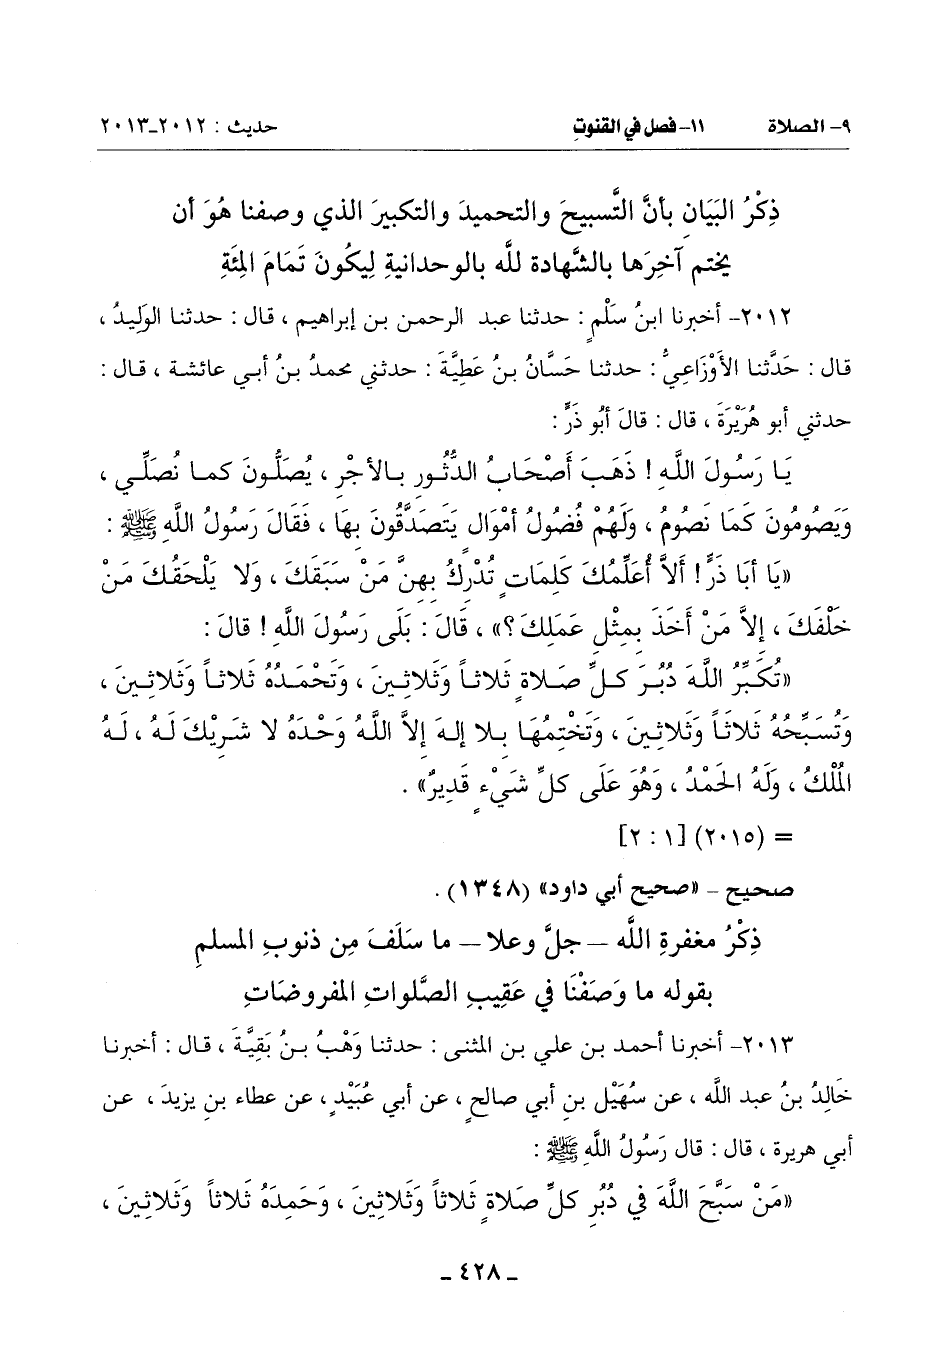 ٩- الصلاة ١١- فصل في القنوتِ حديث : ٢٠١٢-٢٠١٣
ذِكْرُ البَيَانِ بأنَّ التَّسبيحَ والتحميدَ والتكبيرَ الذي وصفنا هُوَ أن
يختم آخِرَها بالشَّهادة للَّه بالوحدانيةِ لِيكُونَ تَمَامَ المِئَةِ
٢٠١٢- أخبرنا ابنُ سَلْمٍ : حدثنا عبد الرحمن بن إبراهيم ، قال : حدثنا الوَلِيدُ ،
قال : حَدَّثنا الأَوْزَاعِيُّ : حدثنا حَسَّانُ بنُ عَطِيَّةَ : حدثني محمدُ بنُ أبي عائشة ، قال :
حدثني أبو هُرَيْرَةَ ، قال : قالَ أبُو ذَرٍّ :
يَا رَسُولَ اللَّهِ ! ذَهَبَ أَصْحَابُ الدُّثُورِ بالأجْرِ ، يُصَلُّونَ كما نُصَلِّي ،
وَيَصُومُونَ كَمَا نَصُومُ ، وَلَهُمْ فُضُولُ أمْوَالٍ يَتَصَدَّقُونَ بِهَا ، فَقَالَ رَسُولُ اللَّهِ ﷺ :
«يَا أبَا ذَرٍّ ! أَلاَّ أُعَلِّمُكَ كَلِمَاتٍ تُدْرِكُ بِهِنَّ مَنْ سَبَقَكَ ، وَلا يَلْحَقُكَ مَنْ
خَلْفَكَ ، إلاَّ مَنْ أَخَذَ بِمِثْلِ عَمَلِكَ ؟» ، قَالَ : بَلَى رَسُولَ اللَّهِ ! قالَ :
«تُكَبِّرُ اللَّهَ دُبُرَ كلِّ صَلاةٍ ثَلاثاً وَثَلاثِينَ ، وَتَحْمَدُهُ ثَلاثاً وَثَلاثِينَ ،
وَتُسَبِّحُهُ ثَلاثَاً وَثَلاثِينَ ، وَتَخْتِمُهَا بِلا إلهَ إلاَّ اللَّهُ وَحْدَهُ لا شَرِيْكَ لَهُ ، لَهُ
المُلْكُ ، وَلَهُ الحَمْدُ ، وَهُوَ عَلَى كلِّ شَيْءٍ قَدِيرٌ» .
= (٢٠١٥) [١ : ٢]
صحيح - «صحيح أبي داود» (١٣٤٨) .
ذِكْرُ مغفرةِ اللَّه – جلَّ وعلا – ما سَلَفَ مِن ذنوبِ المسلمِ
بقوله ما وَصَفْنَا في عَقِيبِ الصَّلواتِ المفروضَاتِ
٢٠١٣- أخبرنا أحمد بن علي بن المثنى : حدثنا وَهْبُ بنُ بَقِيَّةَ ، قال : أخبرنا
خَالِدُ بنُ عبد اللَّه ، عن سُهَيْلِ بنِ أبي صالحٍ ، عن أبي عُبَيْدٍ ، عن عطاء بنِ يزيدَ ، عن
أبي هريرة ، قال : قال رَسُولُ اللَّهِ ﷺ :
«مَنْ سَبَّحَ اللَّهَ في دُبُرِ كلِّ صَلاةٍ ثَلاثاً وَثَلاثِينَ ، وَحَمِدَهُ ثَلاثاً وَثَلاثِينَ ،
ـ ٤٢٨ ـ